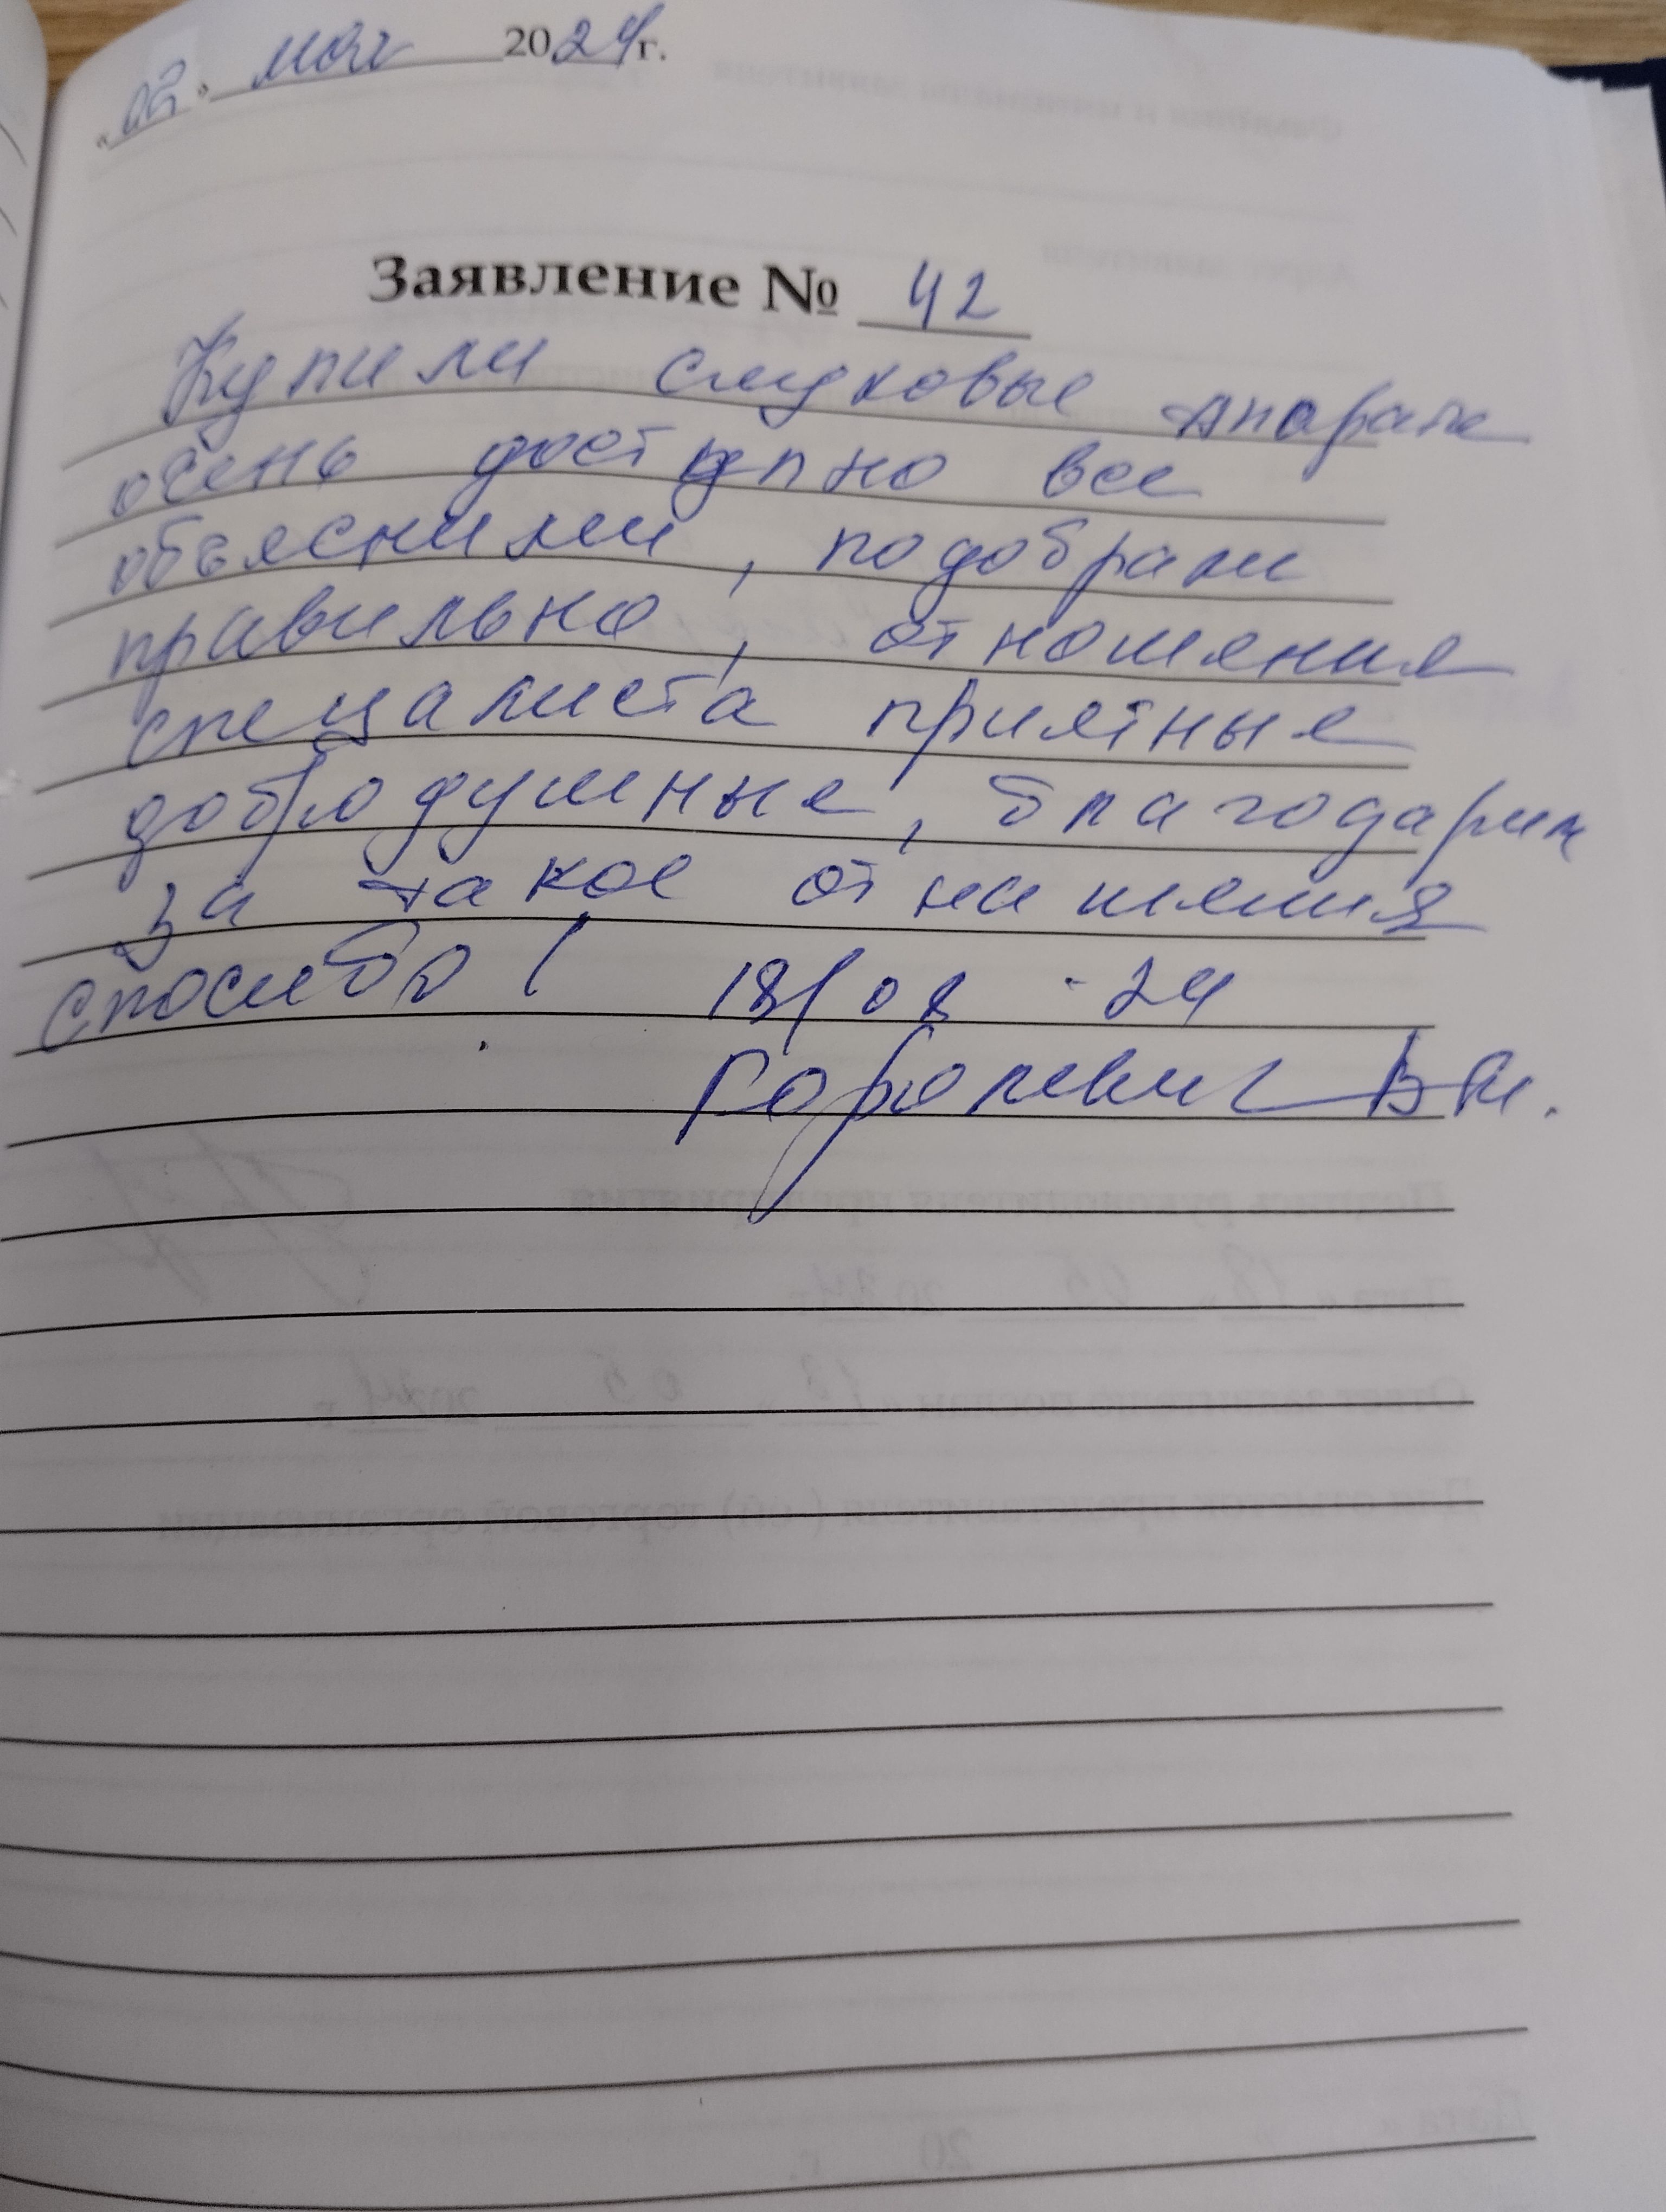 «02» мая 2024г.
Заявление № 42
Купили слуховые апараты
очень доступно все
объяснили, подобрали
правильно, отношения
специалиста приятные
добродушные, благодарим
за такое отношения
спосибо! 18/08 - 24